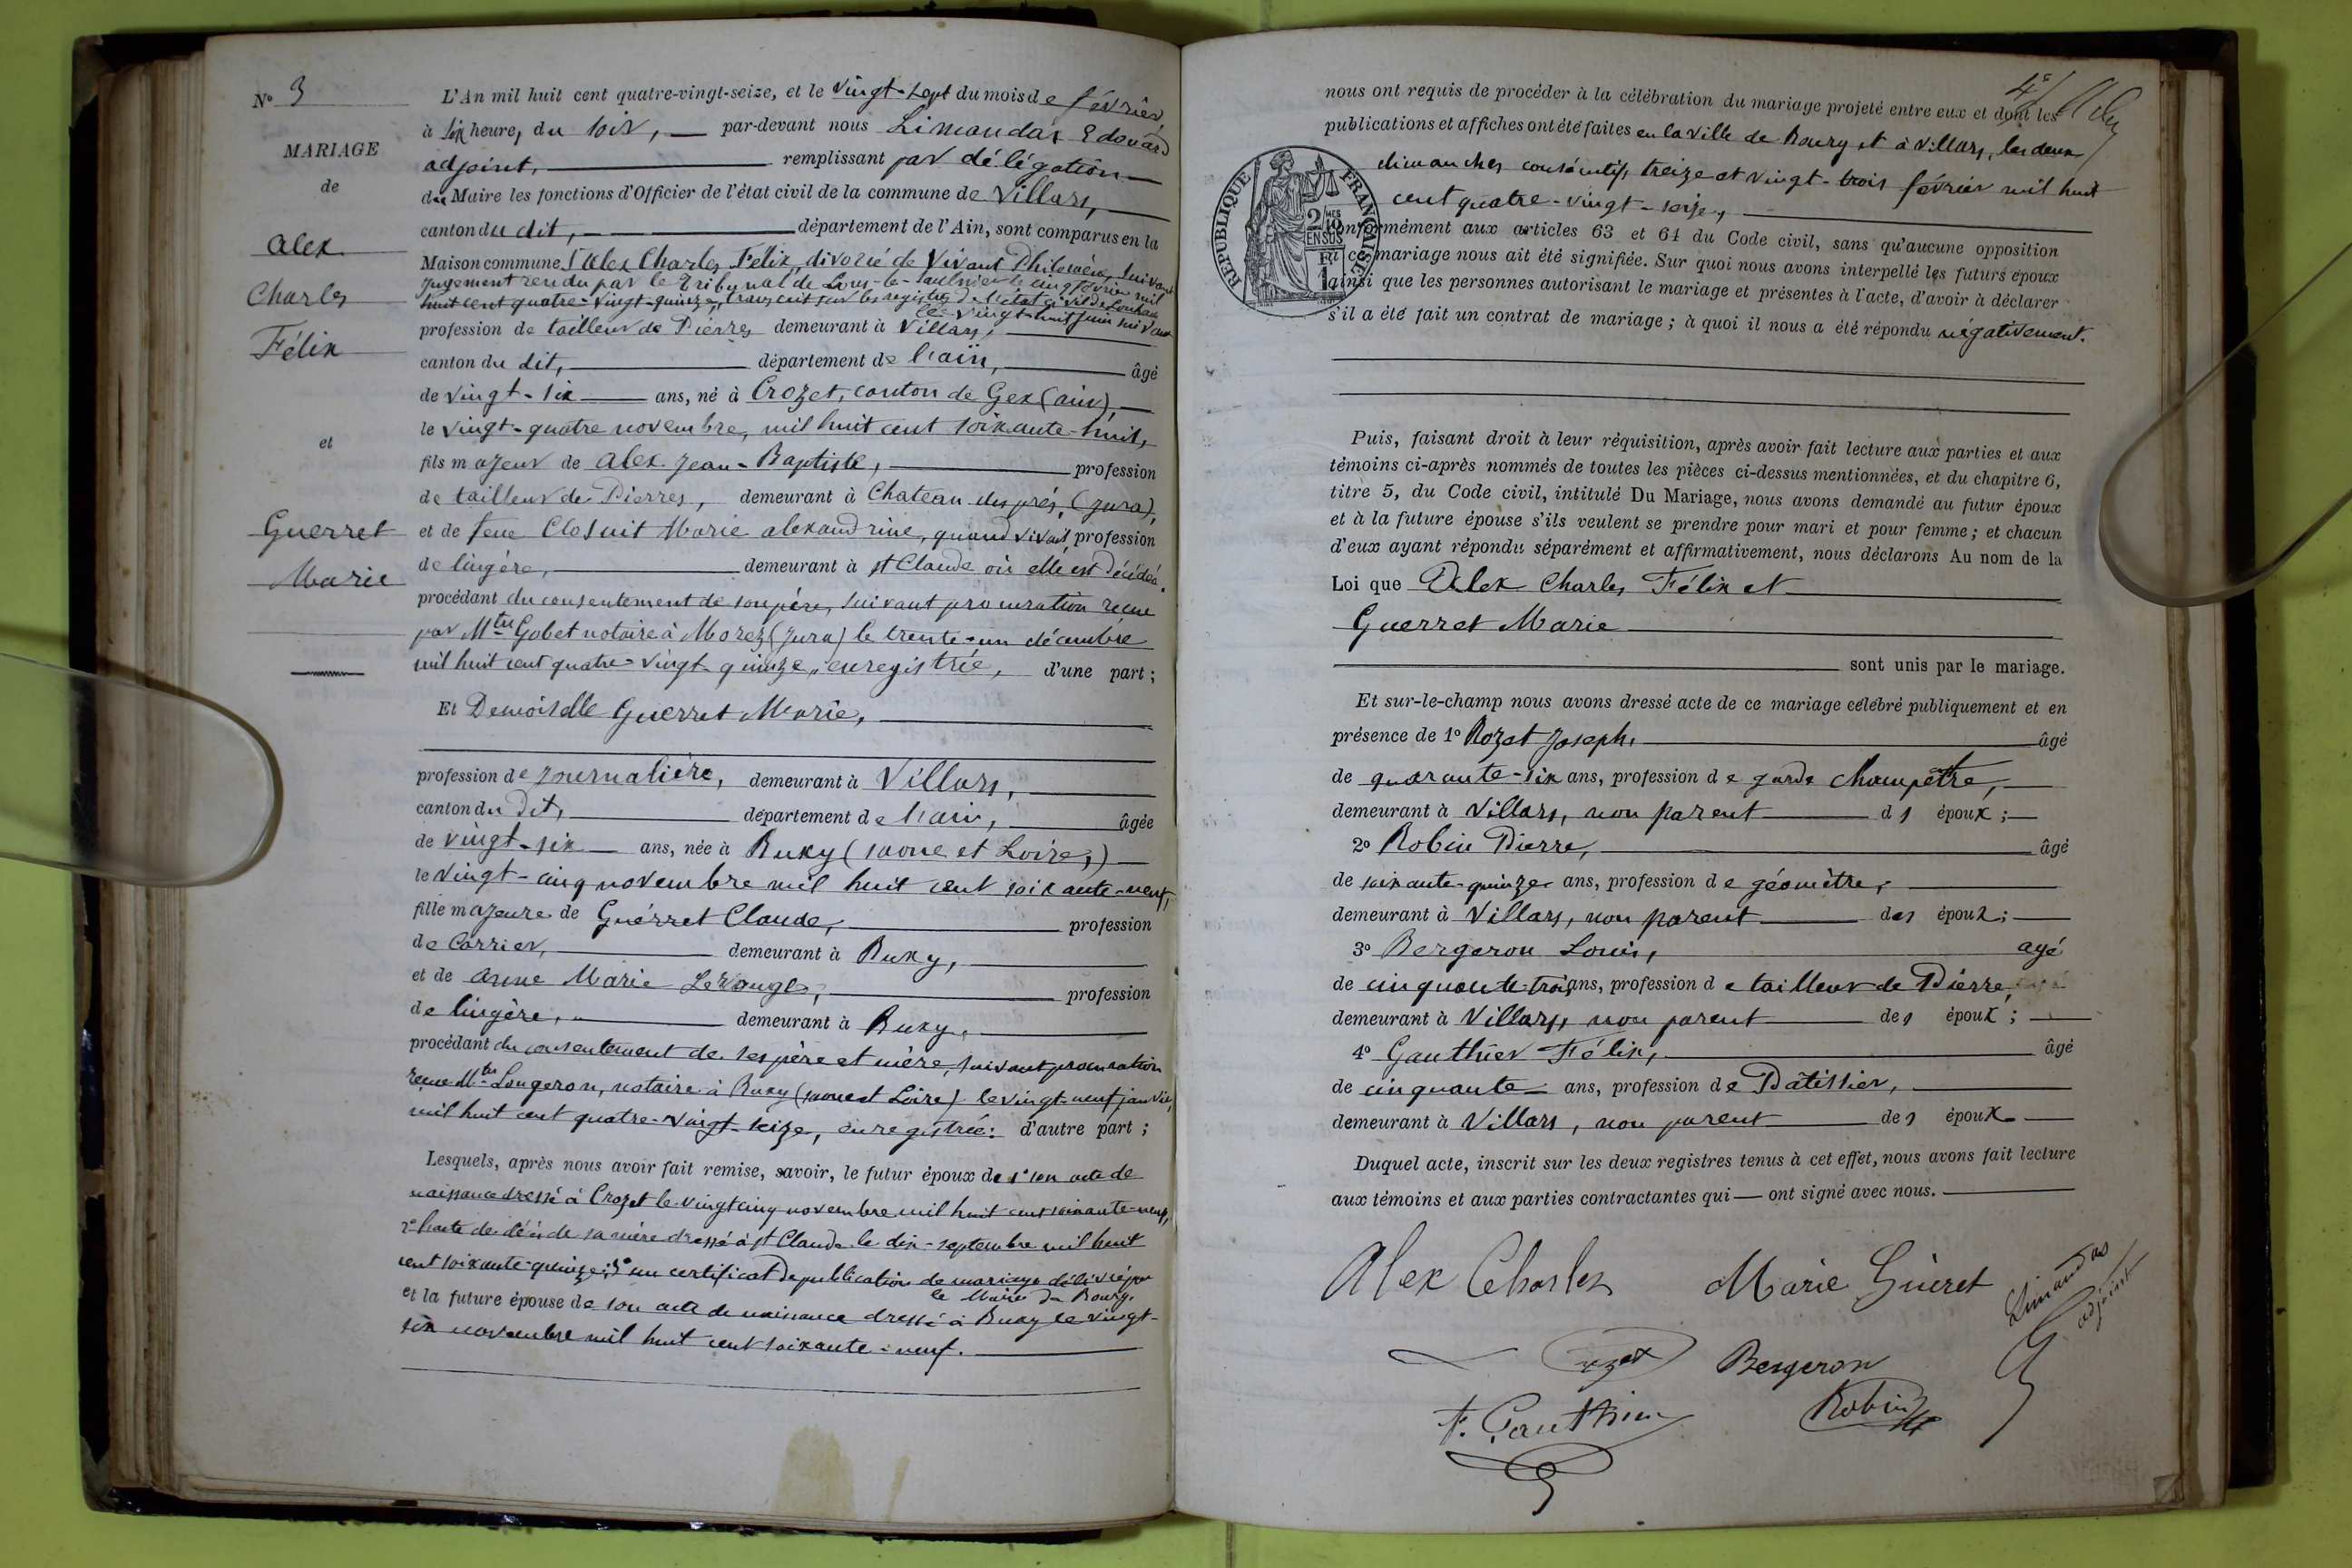 N° 3
MARIAGE
de
Alex
Charles
Félix
et
Guerret
Marie
L'An mil huit cent quatre-vingt-seize, et le vingt-sept du mois de février
à six heures du soir, par-devant nous Limandas Edouard
adjoint, remplissant par délégation
du Maire les fonctions d'Officier de l'état civil de la commune de Villars,
canton du dit, département de l'Ain, sont comparus en la
Maison commune Alex Charles Félix, divorcé de Vivant Philomène, suivant
jugement rendu par le Tribunal de Lons-le-Saulnier le cinq février mil
huit cent quatre-vingt-quinze, transcrit sur les registres de l'état civil de
le vingt-huit juin suivant
profession de tailleur de Pierres demeurant à Villars,
canton du dit, département de l'ain, âgé
de vingt-six ans, né à Crozet, canton de Gex (ain),
le vingt-quatre novembre, mil huit cent soixante-huit,
fils majeur de Alex Jean-Baptiste, profession
de tailleur de Pierres, demeurant à Chateau des prés, (Jura),
et de feue Closuit Marie alexandrine, quand vivait, profession
de lingère, demeurant à st Claude où elle est décédée.
procédant du consentement de son père, suivant procuration reçue
par Mtre Gobet notaire à Morez (Jura) le trente-un décembre
mil huit cent quatre-vingt-quinze, enregistrée, d'une part;
Et Demoiselle Guerret Marie,
profession de journalière, demeurant à Villars,
canton du dit, département de l'ain, âgée
de vingt-six ans, née à Buxy (saone et Loire,)
le vingt-cinq novembre mil huit cent soixante-neuf,
fille majeure de Guérret Claude, profession
de Carrier, demeurant à Buxy,
et de anne Marie Lerouge, profession
de lingère, demeurant à Buxy,
procédant du consentement de ses père et mère, suivant procuration
reçue Mtre Longeron, notaire à Buxy (saone et Loire) le vingt-neuf janvier,
mil huit cent quatre-vingt-seize, enregistrée: d'autre part;
Lesquels, après nous avoir fait remise, savoir, le futur époux de 1° son acte de
naissance dressé à Crozet le vingt cinq novembre mil huit cent soixante-neuf,
2° l'acte de décès de sa mère dressé à st Claude le dix-septembre mil huit
cent soixante-quinze; 3° un certificat de publication de mariage délivré par
le Maire de Bourg.
et la future épouse de son acte de naissance dressé à Buxy le vingt-
six novembre mil huit cent soixante-neuf.
4e
nous ont requis de procéder à la célébration du mariage projeté entre eux et dont les
publications et affiches ont été faites en la ville de Bourg et à Villars, les deux
dimanches consécutifs, treize et vingt-trois février mil huit
cent quatre-vingt-seize,
RÉPUBLIQUE FRANÇAISE
2 10MES EN SUS
1 F
conformément aux articles 63 et 64 du Code civil, sans qu'aucune opposition
au ce mariage nous ait été signifiée. Sur quoi nous avons interpellé les futurs époux
ainsi que les personnes autorisant le mariage et présentes à l'acte, d'avoir à déclarer
s'il a été fait un contrat de mariage; à quoi il nous a été répondu négativement.
Puis, faisant droit à leur réquisition, après avoir fait lecture aux parties et aux
témoins ci-après nommés de toutes les pièces ci-dessus mentionnées, et du chapitre 6,
titre 5, du Code civil, intitulé Du Mariage, nous avons demandé au futur époux
et à la future épouse s'ils veulent se prendre pour mari et pour femme; et chacun
d'eux ayant répondu séparément et affirmativement, nous déclarons Au nom de la
Loi que Alex Charles Félix et
Guerret Marie
sont unis par le mariage.
Et sur-le-champ nous avons dressé acte de ce mariage célébré publiquement et en
présence de 1° Rozet Joseph, âgé
de quarante-six ans, profession de garde champêtre,
demeurant à Villars, non parent ds époux;
2° Robin Pierre, âgé
de soixante-quinze ans, profession de géomètre,
demeurant à Villars, non parent des époux;
3° Bergeron Louis, agé
de cinquante-trois ans, profession de tailleur de Pierre,
demeurant à Villars, non parent des époux;
4° Gauthier Félix, âgé
de cinquante ans, profession de Pâtissier,
demeurant à Villars, non parent des époux
Duquel acte, inscrit sur les deux registres tenus à cet effet, nous avons fait lecture
aux témoins et aux parties contractantes qui ont signé avec nous.
Alex Charles Marie Guéret Limandas
adjoint
Rozet Bergeron
F. Gauthier Robin